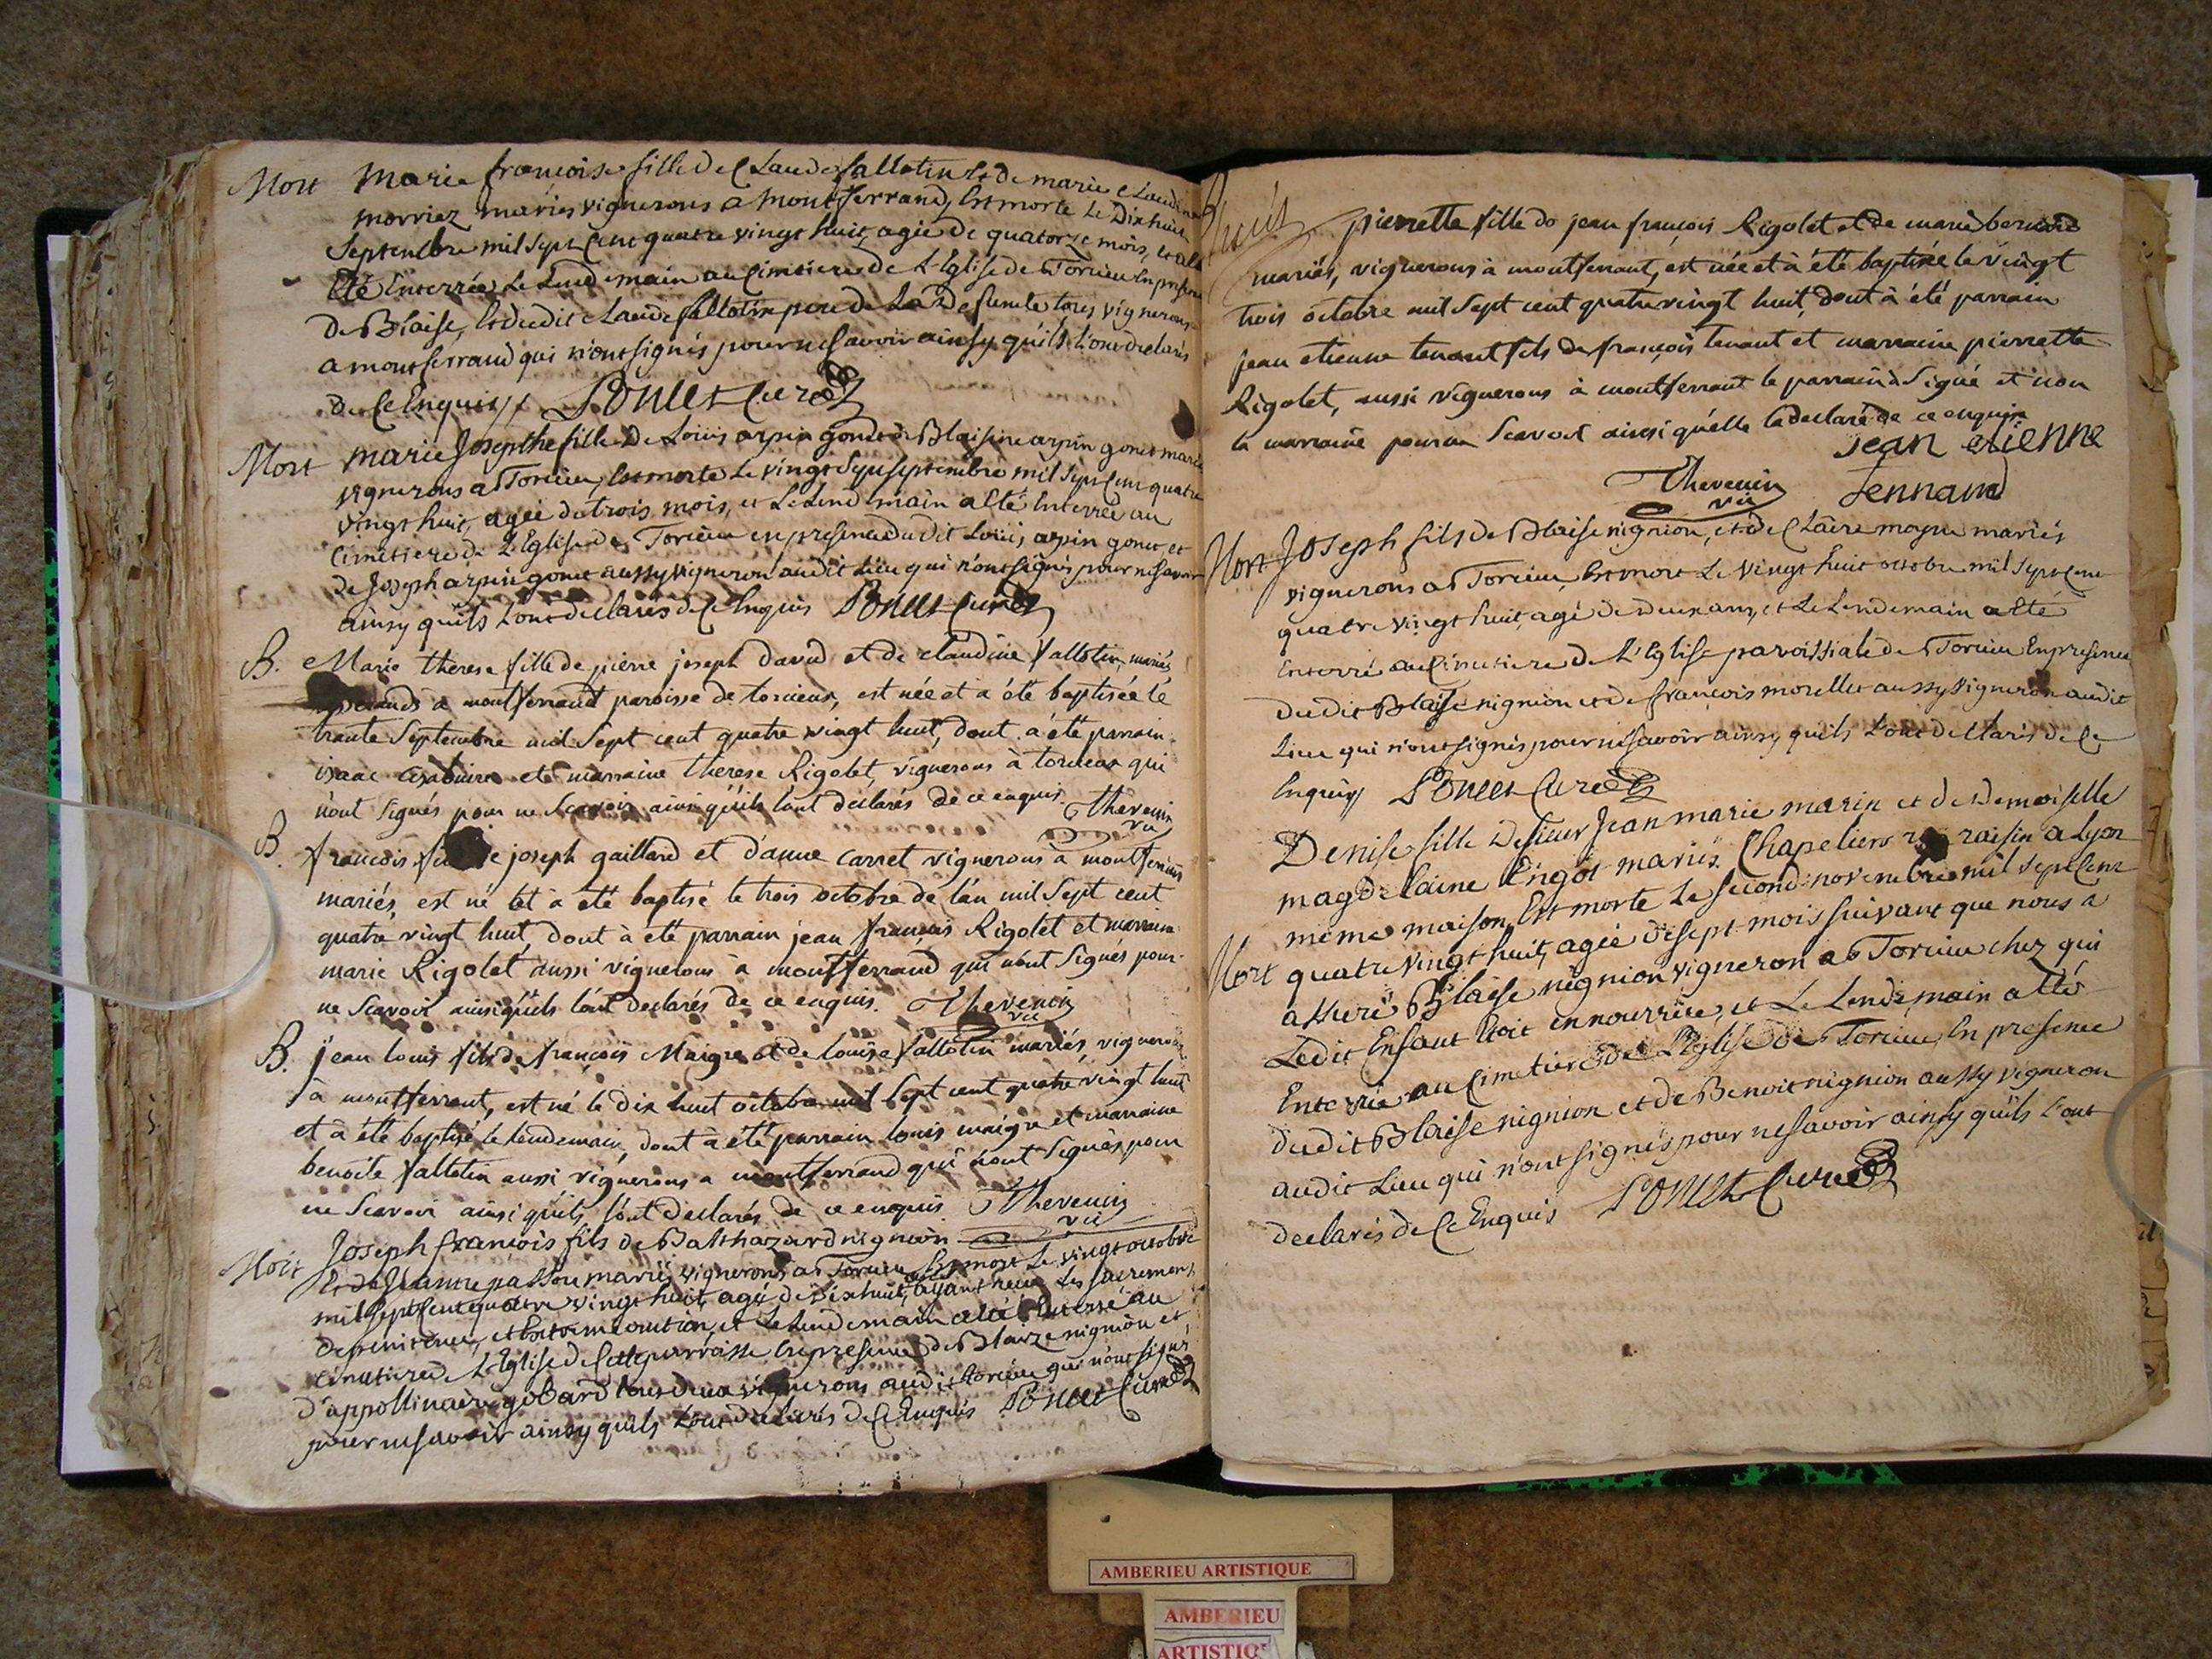 Mort Marie françoise fille de Claude fallotin Et de marie Claudine
morriez mariés vignerons a montferrand, Est morte Le Dix huit
Septembre mil Sept Cent quatre vingt huit, agée de quatorze mois, et a
Eté Enterrée Le Lendemain au Cimetiere de L'Eglise de Torcieu En presence
de Blaise, Et dudit Claude fallotin pere de La Defunte tous vignerons
a montferrand qui n'ont signés pour ne savoir ainsy qu'ils L'ont declarés
de Ce Enquis Poncet Curé
Mort marie Josepthe fille De Louis arpin gonet & Blaisine arpin gonet mariés
vignerons a Torcieu, Est morte Le vingt Sept septembre mil Sept Cent quatre
vingt huit, agée de trois mois, et Le Lendemain a Eté Enterrée au
Cimetiere de L'Eglise de Torcieu en presence du dit Louis arpin gonet, et
de Joseph arpin gonet aussy vigneron audit Lieu qui n'ont signés pour ne savoir
ainsy qu'ils L'ont declarés de Ce Enquis Poncet Curé
B. Marie therese fille de pierre joseph david et de claudine fallotin mariés
à montferrand paroisse de torcieux, est née et a été baptisée le
trente Septembre mil Sept cent quatre vingt huit, dont a été parrain
isaac et marraine therese Rigolet, vignerons à torcieux qui
n'ont signés pour ne Scavoir ainsi qu'ils l'ont declarés de ce enquis. Thevenin
vic
B. françois joseph gaillard et d'anne carret vignerons à montferrant
mariés est né et à été baptisé le trois octobre de l'an mil Sept cent
quatre vingt huit, dont à été parrain jean françois Rigolet et marraine
marie Rigolet aussi vignerons à montferrand qui n'ont Signés pour
ne Scavoir ainsi qu'ils l'ont declarés de ce enquis. Thevenin
vic
B. jean louis fils de françois Maigre et de louise fallotin mariés, vignerons
à montferrent, est né le dix huit octobre mil Sept cent quatre vingt huit
et à été baptisé le lendemain, dont à été parrain louis maigre et marraine
benoite fallotin aussi vignerons a montferrand qui n'ont Signés pour
ne Scavoir ainsi qu'ils l'ont declarés de ce enquis Thevenin
vic
Mort Joseph françois fils de Balthazard nignion
Et de Jeanne passou mariés vignerons a Torcieu Est mort Le vingt octobre
mil Sept Cent quatre vingt huit, agé de Dix huit, ayant recu Les sacremens
de penitence, et Extreme onction, et Le Lendemain a eté Enterré au
Cimetiere de L'Eglise de Cette parroisse En presence de Blaize nignion et
d'appollinaire gobard tous deux vignerons audit torcieu qui n'ont signés
pour ne savoir ainsy qu'ils L'ont declarés de Ce Enquis Poncet Curé
pierrette fille de jean françois Rigolet et de marie bernard
mariés, vignerons à montferrant, est née et à été baptisée le vingt
trois octobre mil Sept cent quatre vingt huit, dont à été parrain
jean etienne tenant fils de françois tenant et marraine pierrette
Rigolet, aussi vignerons à montferrant le parrain à Signé et non
la marraine pour ne Scavoir ainsi qu'elle l'a declaré de ce enquis
jean etienne
Thevenin Tennand
vic
Mort Joseph fils de Blaise nignion, et de Claire mayne mariés
vignerons a Torcieu, Est mort Le Vingt huit octobre mil Sept Cent
quatre vingt huit, agé de deux ans, et Le Lendemain a Eté
Enterré au Cimetiere de L'Eglise paroissiale de Torcieu En presence
dudit Blaise nignion et de françois morellet aussy vigneron audit
Lieu qui n'ont signés pour ne savoir ainsy qu'ils L'ont declarés de Ce
Enquis Poncet Curé
Denise fille de sieur Jean marie marin et de Demoiselle
magdelaine Engos mariés Chapeliers raisin a Lyon
meme maison Est morte Le second novembre mil sept Cent
Mort quatre vingt huit, agée de sept mois suivant que nous a
assuré Blaise nignion vigneron a Torcieu chez qui
Ledit Enfant Etoit en nourrice, et Le Lendemain a Eté
Enterrée au Cimetiere de L'Eglise de Torcieu, En presence
dudit Blaise nignion et de Benoit nignion aussy vigneron
audit Lieu qui n'ont signés pour ne savoir ainsy qu'ils L'ont
declarés de Ce Enquis Poncet Curé
AMBERIEU ARTISTIQUE
AMBERIEU
ARTISTIQ